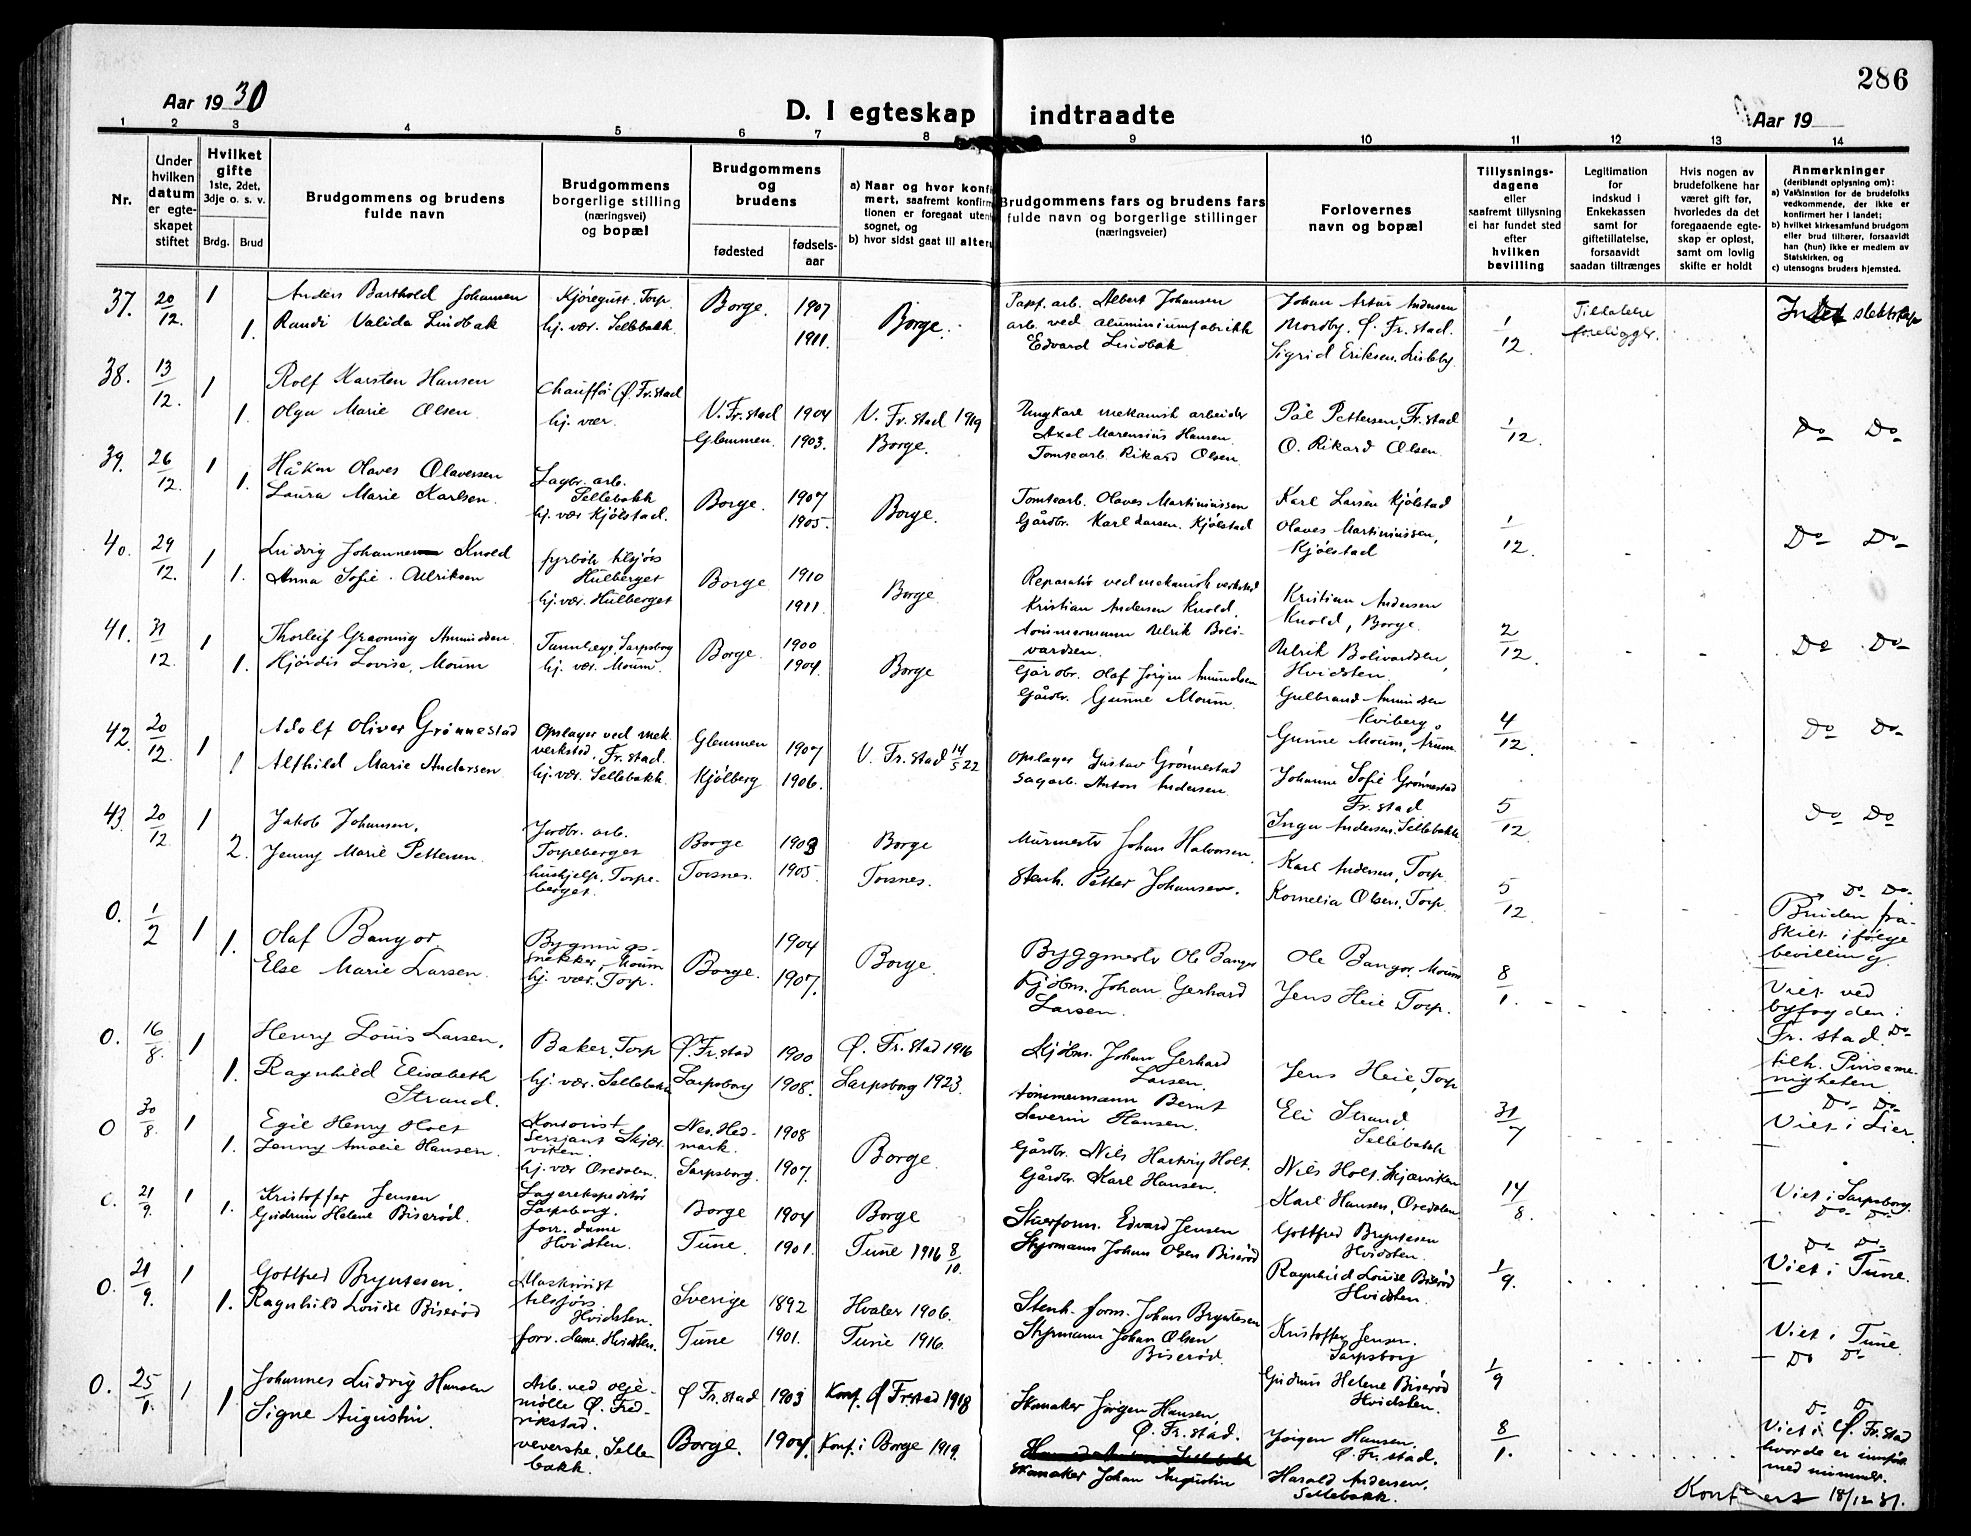 286
Aar 19 30
D. I egteskap indtraadte
Aar 19
1 2 3 4 5 6 7 8 9 10 11 12 13 14
Nr.
Under hvilken datum er egteskapet stiftet
Hvilket gifte
1ste, 2det, 3dje o. s. v.
Brdg. Brud
Brudgommens og brudens fulde navn
Brudgommens borgerlige stilling (næringsvei) og bopæl
Brudgommens og brudens
fødested
fødsels-aar
a) Naar og hvor konfirmert, saafremt konfirmationen er foregaat utenfor sognet, og
b) hvor sidst gaat til alters
Brudgommens fars og brudens fars
fulde navn og borgerlige stillinger
(næringsveier)
Forlovernes navn og bopæl
Tillysnings-dagene eller saafremt tillysning ei har fundet sted efter hvilken bevilling
Legitimation for indskud i Enkekassen samt for giftetillatelse, forsaavidt saadan tiltrænges
Hvis nogen av brudefolkene har været gift før, hvorledes da det foregaaende egteskap er opløst, samt om lovlig skifte er holdt
Anmerkninger
(deriblandt oplysning om):
a) Vaksination for de brudefolks vedkommende, der ikke er konfirmert her i landet;
b) hvilket kirkesamfund brudgom eller brud tilhører, forsaavidt han (hun) ikke er medlem av Statskirken, og
c) utensogns bruders hjemsted.
37. 20/12 1 Anders Barthold Johansen Kjøregutt. Torp Borge 1907 Borge. Papf. arb. Albert Johansen Johan Artur Andersen 1/12 Tillatelse foreligger. Intet slektskap
1. Randi Valida Lindbak hj. vær. Sellebakk 1911. arb. ved aluminiumfabrikk Edvard Lindbak Nordby, Ø. Fr.stad. Sigrid Eriksen, Lisleby
38. 13/12 1 Rolf Karsten Hansen Chauffør Ø. Fr.stad V. Fr.stad 1904 V. Fr.stad 1919 mekanisk arbeider Axel Marensius Hansen Pål Pettersen, Fr.stad 1/12 Do Do
1. Olga Marie Olsen hj. vær. Glemmen 1903. Borge. Tomtearb. Rikard Olsen O. Rikard Olsen
39. 26/12 1 Håkon Olaves Olavesen Lagbr. arb. Sellebakk Borge 1907 Borge. Tomtearb. Olaves Martiniussen Karl Larsen Kjølstad 1/12 Do Do
1. Laura Marie Karlsen. hj. vær Kjølstad. 1905. Gårdbr. Karl Larsen Kjølstad Olaves Martiniussen, Kjølstad
40. 29/12 1 Ludvig Johannes Knold fyrbøt. tilsjøs Hulberget Borge 1910 Borge Reparatør ved mekanisk verksted Kristian Andersen Knold. Kristian Andersen Knold, Borge 2/12 Do Do
1. Anna Sofie Ulriksen hj. vær. Hulberget 1911. tømmermann Ulrik Bolivardsen. Ulrik Bolivardsen, Hvidsten.
41. 31/12 1 Thorleif Graoning Amundsen Tannlæge, Sarpsborg Borge 1900 Borge Gårdbr. Olaf Jørgen Amundsen Gulbrand Amundsen Kviberg 4/12 Do Do
1. Hjørdis Lovise, Moum hj. vær. Moum 1904. Gårdbr. Gunne Moum. Gunne Moum, Årum
42. 20/12 1 Adolf Oliver Grønnestad Opslager ved mek verksted. Fr.stad. Glemmen 1907 V. Fr.stad 14/5 22 Opslager Gustav Grønnestad Johanne Sofie Grønnestad Fr.stad 5/12 Do Do
1 Alfhild Marie Andersen hj. vær. Sellebakk Kjølberg 1906. Sagarb. Anton Andersen Inga Andersen, Sellebakk
43. 20/12 1 Jakob Johansen. Jordbr. arb. Torpeberget Borge 1903 Borge Murmestr Johan Halvorsen Karl Andersen, Torp 5/12 Do Do
2. Jenny Marie Pettersen. hushjelp. Torpeberget. Torsnes. 1905. Torsnes. Stenh. Petter Johansen. Kornelia Olsen, Torp Bruden fraskilt ifølge bevilling
0. 1/2 1 Olaf Bangor Bygningssnekker, Moum Borge. 1904 Borge Byggmestr Ole Bangor Ole Bangor, Moum 8/1. Viet ved byfogden i Fr.stad. Do
1. Else Marie Larsen. hj. vær. Torp. 1907. Kjøbm. Johan Gerhard Larsen. Jens Heie, Torp.
0. 16/8. 1 Henry Louis Larsen. Baker, Torp Ø. Fr.stad 1900 Ø. Fr.stad 1916 Kjøbm. Johan Gerhard Larsen. Jens Heie, Torp 31/7 tilh. Pinsemenigheten Do Do
1. Ragnhild Elisabeth Strand. hj. vær. Sellebakk Sarpsborg 1908. Sarpsborg 1923. tømmermann Bernt Severin Hansen. Eli Strand, Sellebakk
0 30/8. 1 Egil Henry Holt Kontorist Sersjant Skjærviken. Nes. Hedmark. 1908 Borge Gårdbr. Nils Hartvig Holt. Nils Holt, Skjærviken 14/8. Viet i Lier.
1. Jenny Amalie Hansen. hj. vær Øredalen. Sarpsborg. 1907. Gårdbr. Karl Hansen. Karl Hansen, Øredalen
0. 21/9. 1 Kristoffer Jensen Lagerekspeditør Sarpsborg. Borge 1904 Borge Stuerform. Edvard Jensen Gottfred Bryntesen Hvidsten. 1/9. Viet i Sarpsborg. Do Do
1. Gudrun Helene Biserød. forr. dame Hvidsten. Tune. 1901. Tune 1916 8/10. Styrmann Johan Olsen Biserød Ragnhild Louise Biserød Hvidsten. Do Do Viet i Tune.
0. 21/9. 1 Gottfred Bryntesen. Maskinist tilsjøs Hvidsten. Sverige 1892 Hvaler 1906. Stenh. form. Johan Bryntesen Kristoffer Jensen. Sarpsborg 1/9 Viet i Tune.
1. Ragnhild Louise Biserød forr. dame. Hvidsten. Tune 1901. Tune 1916. Styrmann Johan Olsen Biserød. Gudrun Helene Biserød Hvidsten. Do Do
0. 25/1. 1 Johannes Ludvig Hansen Arb. ved oljemølle Ø. Fredrikstad. Ø Fr.stad 1903 Konf. Ø Fr.stad 1918 Skomaker Jørgen Hansen, Ø. Fr.stad. Jørgen Hansen. Ø. Fr.stad. 8/1. Do Do Viet i Ø. Fr.stad hvor de er innført med nummer.
1 Signe Augustin. veverske. Sellebakk. Borge. 1904. Konf. i Borge 1919. Skomaker Johan Augustin Harald Andersen. Sellebakk.
Konferert 18/12 31.